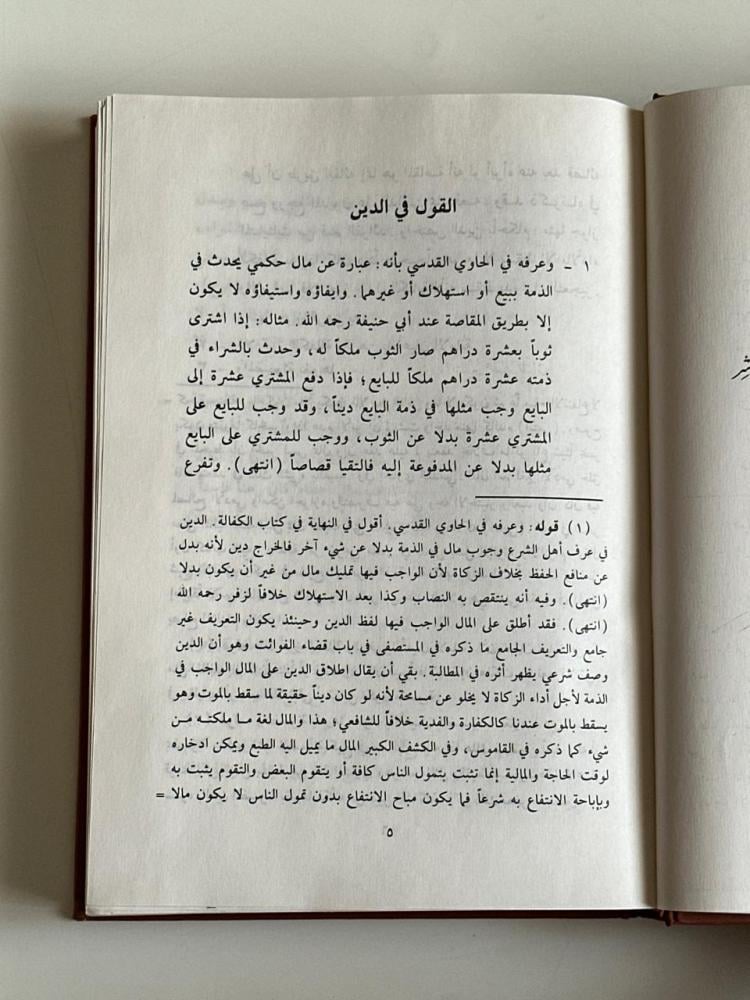 القول في الدين
١ ــ وعرفه في الحاوي القدسي بأنه: عبارة عن مال حكمي يحدث في
الذمة ببيع أو استهلاك أو غيرهما. وايفاؤه واستيفاؤه لا يكون
إلا بطريق المقاصة عند أبي حنيفة رحمه الله. مثاله: إذا اشترى
ثوباً بعشرة دراهم صار الثوب ملكاً له، وحدث بالشراء في
ذمته عشرة دراهم ملكاً للبايع؛ فإذا دفع المشتري عشرة إلى
البايع وجب مثلها في ذمة البايع ديناً، وقد وجب للبايع على
المشتري عشرة بدلا عن الثوب، ووجب للمشتري على البايع
مثلها بدلا عن المدفوعة إليه فالتقيا قصاصاً (انتهى). وتفرع
(١) قوله: وعرفه في الحاوي القدسي. أقول في النهاية في كتاب الكفالة. الدين
في عرف أهل الشرع وجوب مال في الذمة بدلا عن شيء آخر فالخراج دين لأنه بدل
عن منافع الحفظ بخلاف الزكاة لأن الواجب فيها تمليك مال من غير أن يكون بدلا
(انتهى). وفيه أنه ينتقص به النصاب وكذا بعد الاستهلاك خلافاً لزفر رحمه الله
(انتهى). فقد أطلق على المال الواجب فيها لفظ الدين وحينئذ يكون التعريف غير
جامع والتعريف الجامع ما ذكره في المستصفى في باب قضاء الفوائت وهو أن الدين
وصف شرعي يظهر أثره في المطالبة. بقي أن يقال اطلاق الدين على المال الواجب في
الذمة لأجل أداء الزكاة لا يخلو عن مسامحة لأنه لو كان ديناً حقيقة لما سقط بالموت وهو
يسقط بالموت عندنا كالكفارة والفدية خلافاً للشافعي؛ هذا والمال لغة مـا ملكتـه مـن
شيء كما ذكره في القاموس، وفي الكشف الكبير المال ما يميل اليه الطبع ويمكن ادخاره
لوقت الحاجة والمالية إنما تثبت بتمول الناس كافة أو بتقوم البعض والتقوم يثبت به
وبإباحة الانتفاع به شرعاً فما يكون مباح الانتفاع بدون تمول الناس لا يكون مالا =
٥